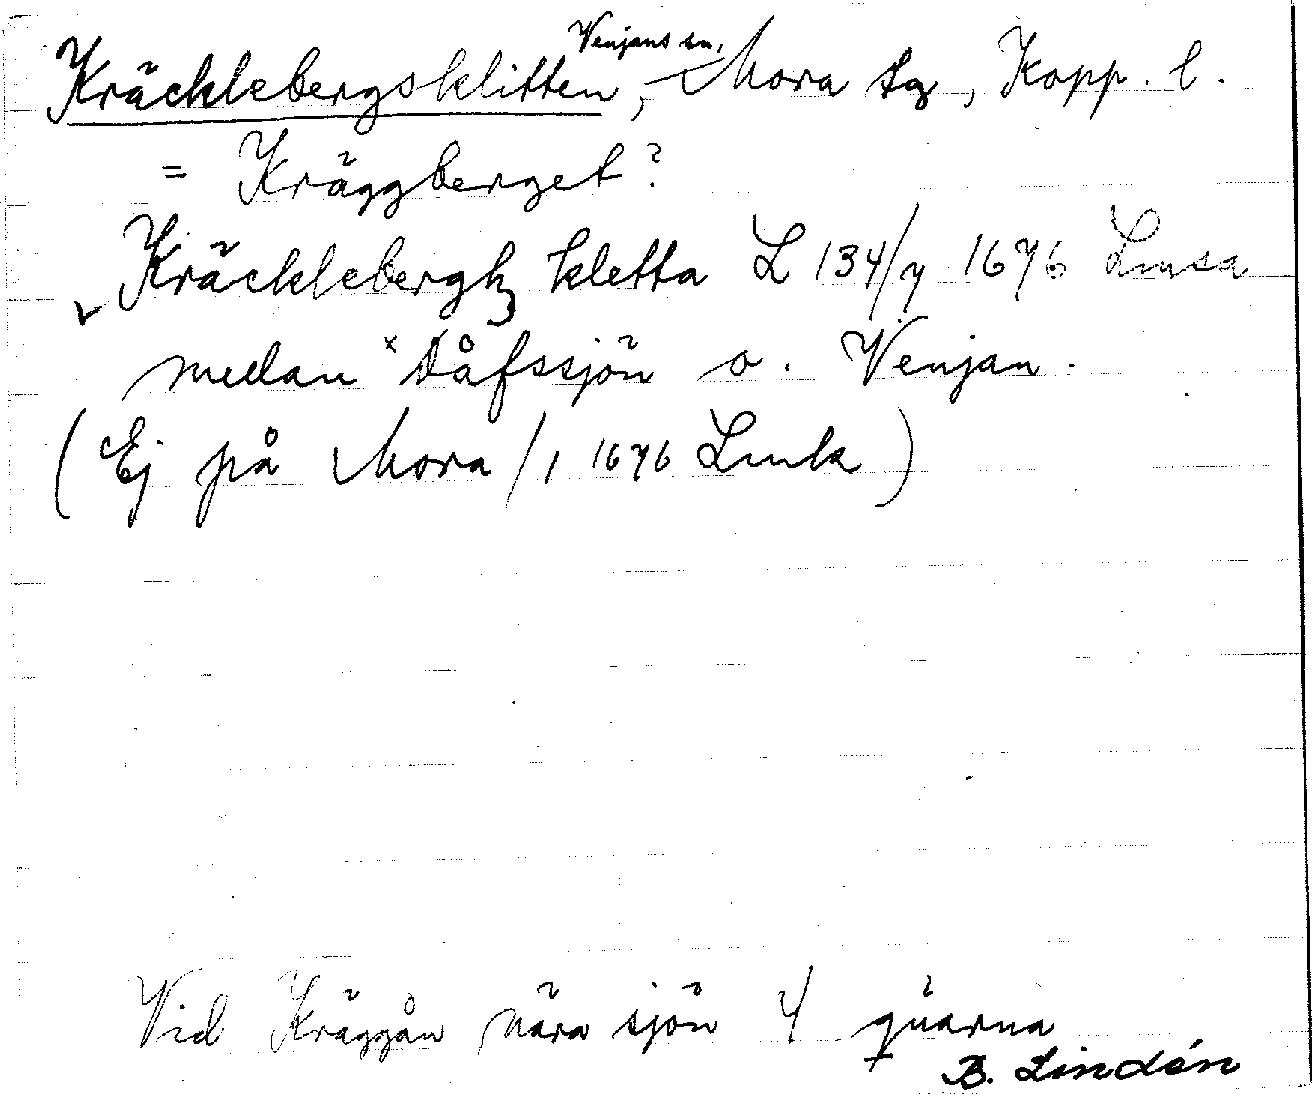 Venjans sn,
Kräcklebergsklitten, Mora tg, Kopp. l.
= Kräggberget?
Kräcklebergz kletta L 134/7 1676 Lmsa
medan × Dåfssjön o. Venjan.
(Ej på Mora /1 1676 Lmk)
Vid Kräggån nära sjön 4 quarna
B. Lindén